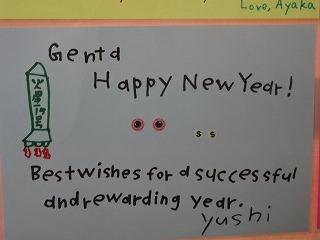 Love, Ayaka
Genta
Happy New Year!
s s
Best wishes for a successful
and rewarding year.
yushi